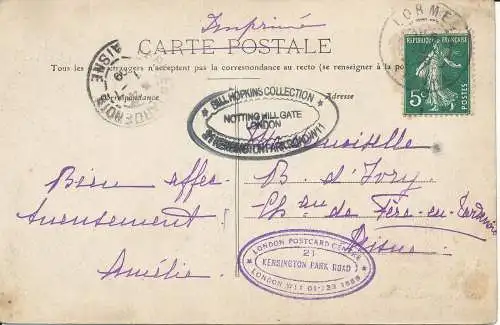 Imprimé
CARTE POSTALE
Tous les étrangers n'acceptent pas la correspondance au recto (se renseigner à la
Correspondance
Adresse
LORMES
RÉPUBLIQUE FRANÇAISE
5c
POSTES
AISNE
BILL HOPKINS COLLECTION
NOTTING HILL GATE
LONDON
KENSINGTON PARK ROAD W11
Mademoiselle
B. d'Ivry
Chau de Fère-en-Tardenois
Aisne
Bien affec-
tueusement
Amélie
LONDON POSTCARD CENTRE
21
KENSINGTON PARK ROAD
LONDON W11 01-229 1888